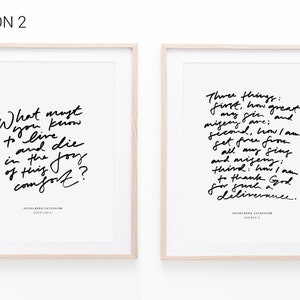 ON 2
What must
you know
to live
and die
in the joy
of this
comfort?
HEIDELBERG CATECHISM
QUESTION 2
Three things:
first, how great
my sin and
misery are;
second, how I am
set free from
all my sins
and misery;
third: how I am
to thank God
for such a
deliverance.
HEIDELBERG CATECHISM
ANSWER 2